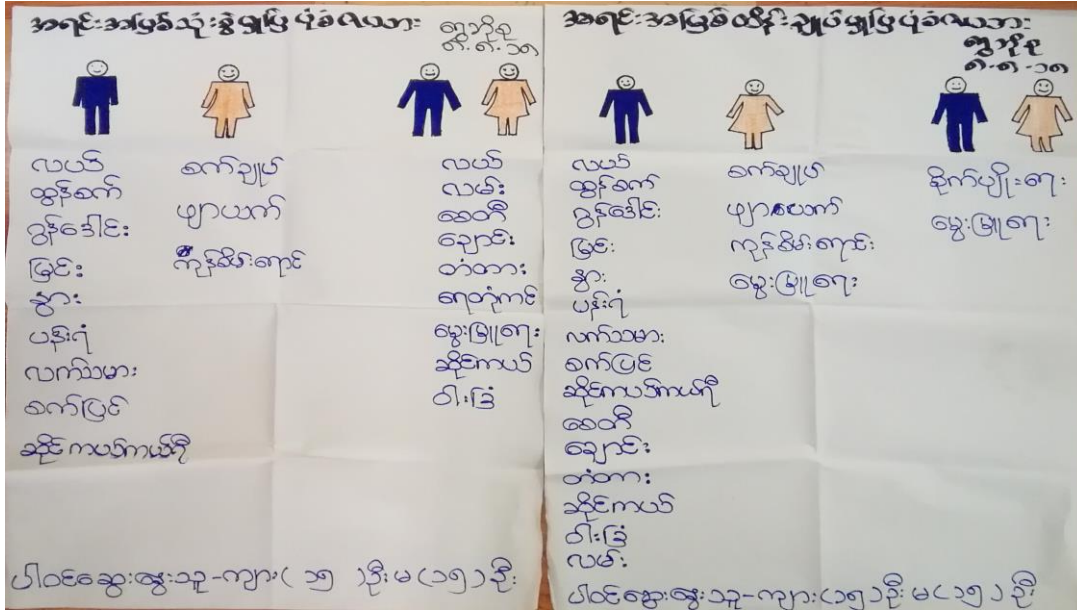 အရင်းအမြစ်သုံးစွဲမှုပြပုံခံဇယား
ရွာဘိုစု
၈.၈.၁၈
လယ်
ထွန်စက်
ဂွန်ဒေါင်း
မြင်း
နွား
ပန်းရံ
လက်သမား
စက်ပြင်
ဆိုင်ကယ်ကယ်ရီ
စက်ချုပ်
ဖျာယက်
ကုန်စိမ်းရောင်း
လယ်
လမ်း
စေတီ
ချောင်း
တံတား
ရေတုံကင်
မွေးမြူရေး
ဆိုင်ကယ်
ဝါးခြံ
ပါဝင်ဆွေးနွေးသူ-ကျား( ၁၅ )ဦး မ(၁၅)ဦး
အရင်းအမြစ်ထိန်းချုပ်မှုပြပုံခံဇယား
ရွာဘိုစု
၈-၈-၁၈
လယ်
ထွန်စက်
ဂွန်ဒေါင်း
မြင်း
နွား
ပန်းရံ
လက်သမား
စက်ပြင်
ဆိုင်ကယ်ကယ်ရီ
စေတီ
ချောင်း
တံတား
ဆိုင်ကယ်
ဝါးခြံ
လမ်း
စက်ချုပ်
ဖျာယက်
ကုန်စိမ်းရောင်း
မွေးမြူရေး
စိုက်ပျိုးရေး
မွေးမြူရေး
ပါဝင်ဆွေးနွေးသူ-ကျား(၁၅)ဦး မ(၁၅)ဦး